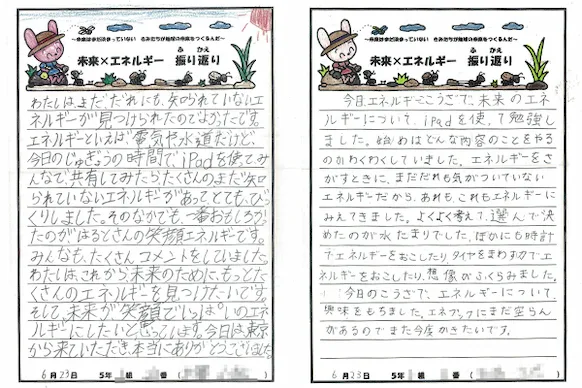 〜未来はまだ決まっていない きみたちが地球の未来をつくるんだ〜
未来×エネルギー 振り返り
ふ かえ
わたしは、まだ、だれにも、知られていないエ
ネルギーが見つけられたのでよかったです。
エネルギーといえば電気や水道だけど、
今日のじゅぎょうの時間で、iPadを使てみ
んなで、共有してみたらたくさんのまだ知
られていないエネルギーがあって、とても、びっ
くりしました。そのなかでも、一番おもしろか
たのがはるとさんの笑顔エネルギーです。
みんなも、たくさんコメントをしていました。
わたしは、これから未来のために、もっとた
くさんのエネルギーを見つけたいです。
そして、未来が笑顔でいっぱいのエネ
ルギーにしたいと思っています。今日は東京
から来ていただき、本当にありがとうございました。
6月23日 5年 組 番 (
〜未来はまだ決まっていない きみたちが地球の未来をつくるんだ〜
未来×エネルギー 振り返り
ふ かえ
今日、エネルギーこうざで、未来のエネ
ルギーについて、iPadを使って勉強し
ました。始めはどんな内容のことをやる
のかわくわくしていました。エネルギーをさ
がすときに、まだだれも気がついていない
エネルギーだから、あれも、これもエネルギーに
みえてきました。よくよく考えて、選んで決
めたのが水たまりでした。ほかにも時計
でエネルギーをおこしたりタイヤをまわす力でエ
ネルギーをおこしたり、想像がふくらみました。
今日のこうざで、エネルギーについて
興味をもちました。エネブックにまだ空らん
があるのでまた今度かきたいです。
6月23日 5年 組 番 (